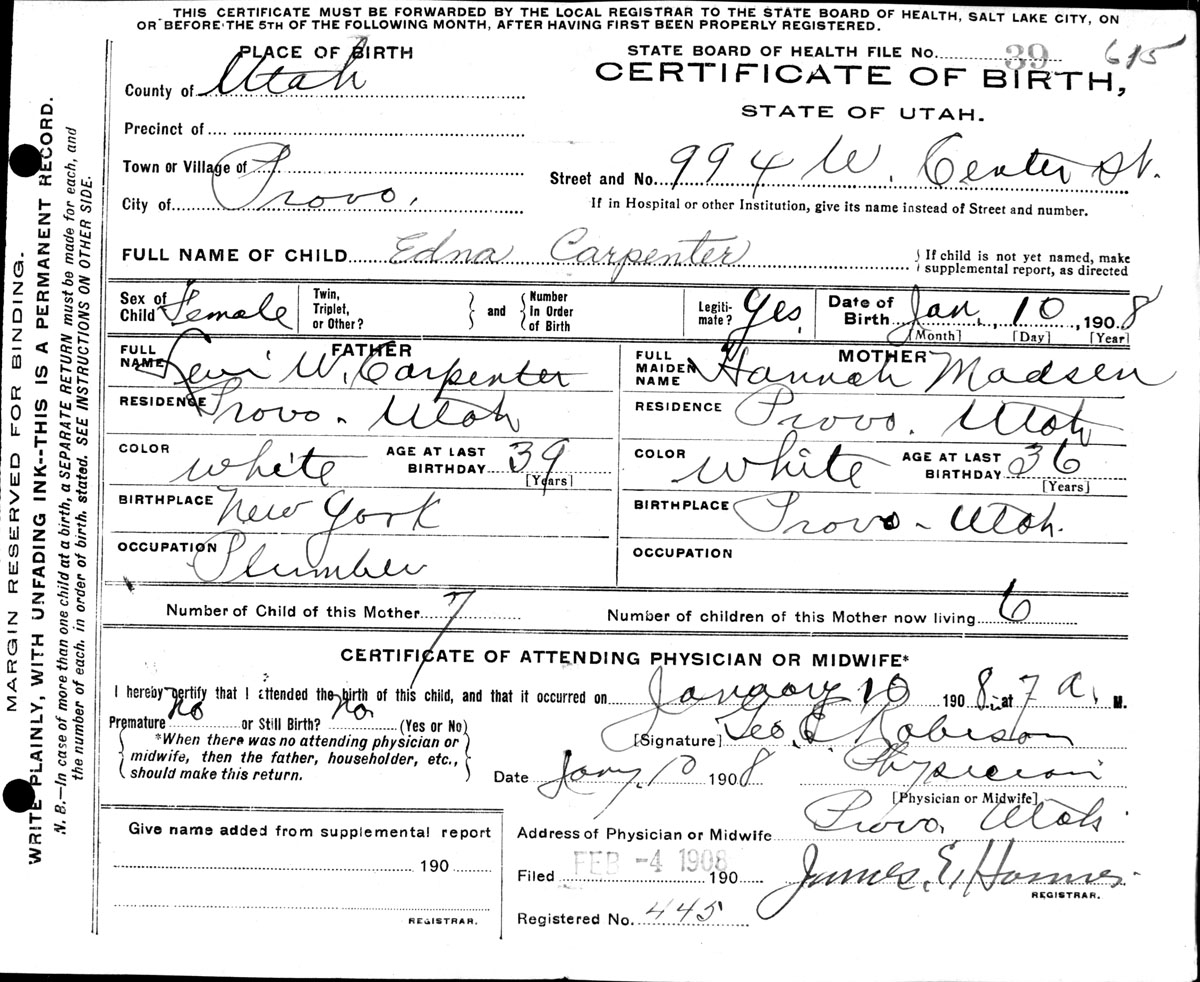 THIS CERTIFICATE MUST BE FORWARDED BY THE LOCAL REGISTRAR TO THE STATE BOARD OF HEALTH, SALT LAKE CITY, ON
OR BEFORE THE 5TH OF THE FOLLOWING MONTH, AFTER HAVING FIRST BEEN PROPERLY REGISTERED.
PLACE OF BIRTH
STATE BOARD OF HEALTH FILE No. 39 615
County of Utah
CERTIFICATE OF BIRTH,
STATE OF UTAH.
Precinct of
Town or Village of
Street and No. 994 W. Center St.
City of Provo.
If in Hospital or other Institution, give its name instead of Street and number.
FULL NAME OF CHILD Edna Carpenter
If child is not yet named, make
supplemental report, as directed
Sex of Child Female
Twin, Triplet, or Other?
and
Number In Order of Birth
Legiti-mate? Yes.
Date of Birth Jan. 10, 1908
[Month] [Day] [Year]
FATHER
FULL NAME Levi W. Carpenter
RESIDENCE Provo. Utah
COLOR white
AGE AT LAST BIRTHDAY 39
[Years]
BIRTHPLACE New York
OCCUPATION Plumber
MOTHER
FULL MAIDEN NAME Hannah Madsen
RESIDENCE Provo. Utah
COLOR white
AGE AT LAST BIRTHDAY 36
[Years]
BIRTHPLACE Provo - Utah.
OCCUPATION
Number of Child of this Mother 7
Number of children of this Mother now living 6
CERTIFICATE OF ATTENDING PHYSICIAN OR MIDWIFE*
I hereby certify that I attended the birth of this child, and that it occurred on January 10 1908, at 7 a. M.
Premature No or Still Birth? No. (Yes or No)
*When there was no attending physician or
midwife, then the father, householder, etc.,
should make this return.
[Signature] Geo. E. Robison
Date Jany. 10 1908
Physician
[Physician or Midwife]
Give name added from supplemental report
190
REGISTRAR.
Address of Physician or Midwife Provo, Utah
FEB -4 1908
Filed 190
James. E.
REGISTRAR.
Registered No. 445
MARGIN RESERVED FOR BINDING.
WRITE PLAINLY, WITH UNFADING INK--THIS IS A PERMANENT RECORD.
N. B.—In case of more than one child at a birth, a SEPARATE RETURN must be made for each, and
the number of each, in order of birth, stated. SEE INSTRUCTIONS ON OTHER SIDE.